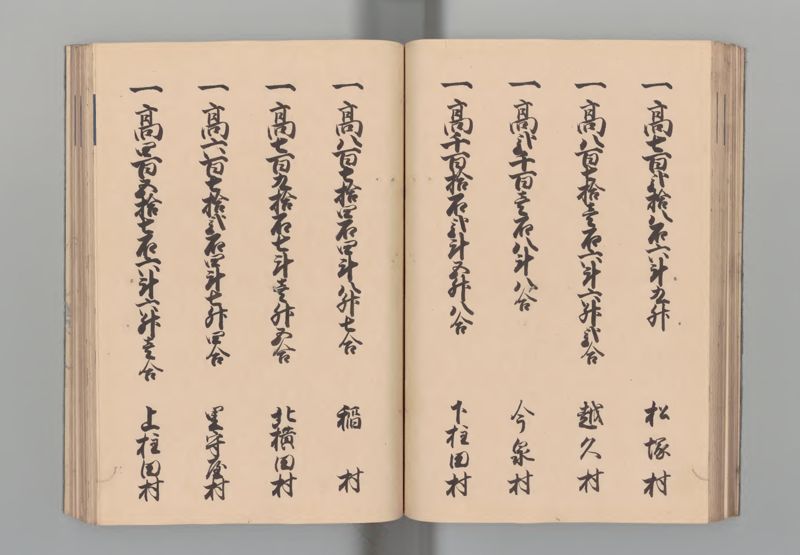 一高七百弐拾八石六斗九升 松塚村
一高八百七拾壱石六斗六升弐合 越久村
一高弐千百壱石八斗八合 今泉村
一高千百拾石弐斗五升八合 下柱田村
一高八百七拾四石四斗八升七合 稲村
一高七百九拾石七斗壱升五合 北横田村
一高六百七拾弐石四斗七升四合 里守屋村
一高四百五拾七石六斗六升壱合 上柱田村